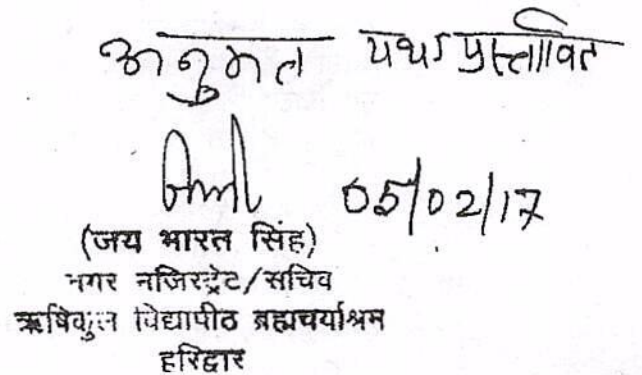 अनुमत यथा प्रस्तावित
05/02/17
(जय भारत सिंह)
नगर मजिस्ट्रेट/सचिव
ऋषिकुल विद्यापीठ ब्रह्मचर्याश्रम
हरिद्वार